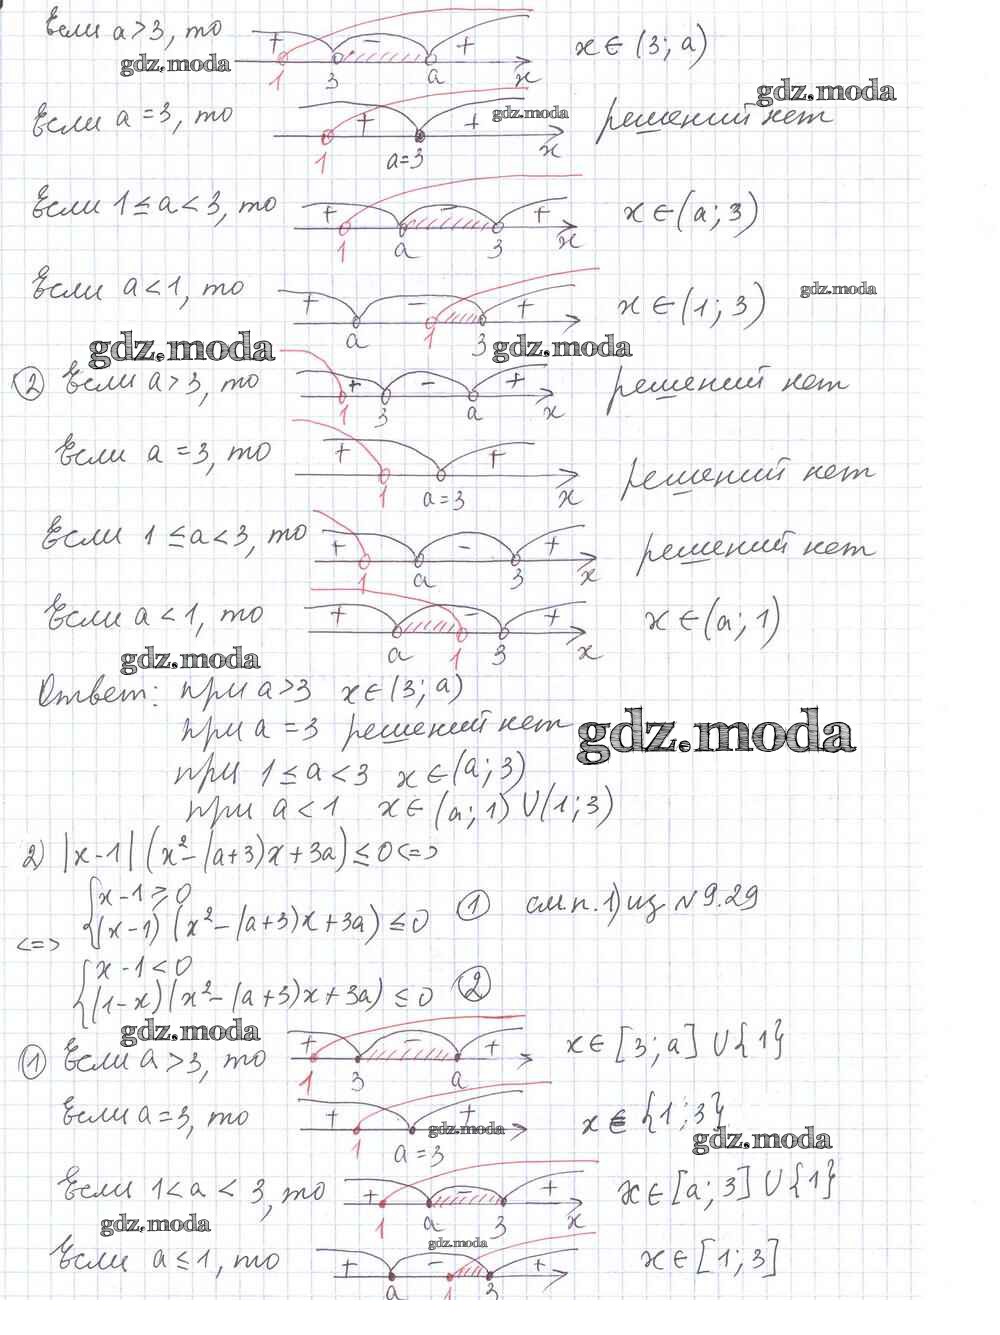 Если a>3, то + 1 3 − a + x x∈(3; a)
gdz.moda
gdz.moda
Если a=3, то 1 + a=3 + x решений нет
gdz.moda
Если 1≤a<3, то + 1 a − 3 + x x∈(a; 3)
Если a<1, то + a − 1 3 + x∈(1; 3)
gdz.moda
gdz.moda
gdz.moda
② Если a>3, то 1 + 3 − a + x решений нет
Если a=3, то + 1 a=3 + x решений нет
Если 1≤a<3, то + 1 a − 3 + x решений нет
Если a<1, то + a 1 − 3 + x x∈(a; 1)
gdz.moda
Ответ: при a>3 x∈(3; a)
при a=3 решений нет
gdz.moda
при 1≤a<3 x∈(a; 3)
при a<1 x∈(a; 1)∪(1; 3)
2) |x-1|(x²-(a+3)x+3a)≤0<=>
{x-1≥0
<=> {(x-1)(x²-(a+3)x+3a)≤0 ① см п.1) из №9.29
{x-1<0
{(1-x)(x²-(a+3)x+3a)≤0 ②
gdz.moda
① Если a>3, то + 1 3 − a + x∈[3; a]∪{1}
Если a=3, то + 1 a=3 + x∈{1; 3}
gdz.moda
gdz.moda
Если 1<a<3, то + 1 a − 3 + x x∈[a; 3]∪{1}
gdz.moda
gdz.moda
Если a≤1, то + a − 1 3 + x∈[1; 3]